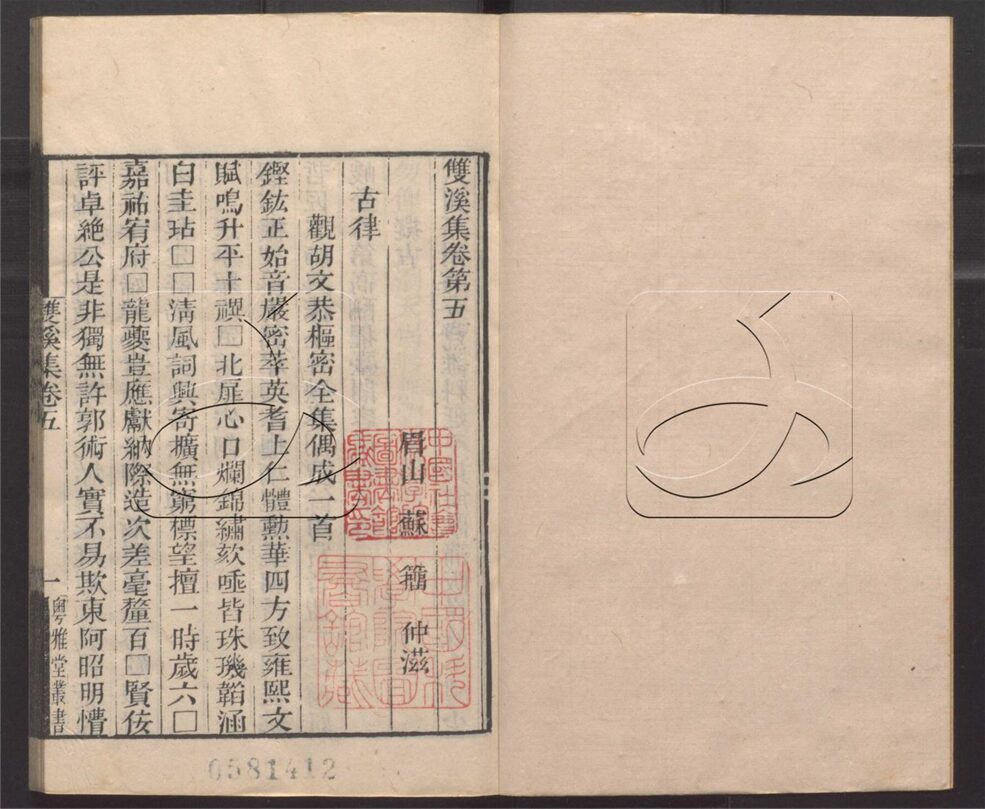 雙溪集卷第五
眉山蘇籀仲滋
古律
觀胡文恭樞密全集偶成一首
鏗鈜正始音嚴密萃英耆上仁體勳華四方致雍熙文
賦鳴升平十禩□北扉心口爛錦繡欬唾皆珠璣韜涵
白圭玷□□清風詞興寄擴無窮標望擅一時歲六□
嘉祐宥府□龍夔豈應獻納際造次差毫釐百□賢伎
評卓絶公是非獨無許郭術人實不易欺東阿昭明懵
雙溪集卷五
一
粵雅堂叢書
0581412